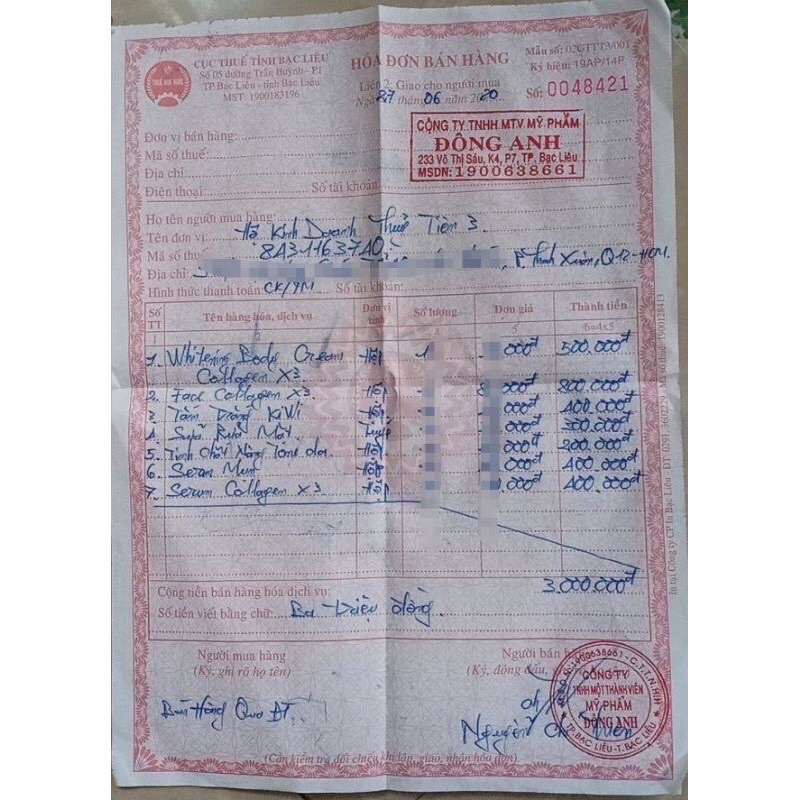 CỤC THUẾ TỈNH BẠC LIÊU
Số 05 đường Trần Huỳnh - P.1
TP Bạc Liêu - tỉnh Bạc Liêu
MST: 1900183196
HÓA ĐƠN BÁN HÀNG
Liên 2: Giao cho người mua
Ngày 27 tháng 06 năm 2020
Mẫu số: 02GTTT3/001
Ký hiệu: 19AP/14P
Số: 0048421
Đơn vị bán hàng:
Mã số thuế:
Địa chỉ:
Điện thoại: Số tài khoản:
CÔNG TY TNHH MTV MỸ PHẨM
ĐÔNG ANH
233 Võ Thị Sáu, K4, P7, TP. Bạc Liêu
MSDN: 1900638661
Họ tên người mua hàng:
Tên đơn vị: Hộ Kinh Doanh Thuỷ Tiên 3
Mã số thuế: 8A311637A0
Địa chỉ: P. Thạnh Xuân, Q12-HCM.
Hình thức thanh toán: CK/TM Số tài khoản:
Số TT Tên hàng hóa, dịch vụ Đơn vị tính Số lượng Đơn giá Thành tiền
5 6=4x5
1. Whitening Body Cream Hộp 1 000đ 500.000đ
Collagen X3
2. Face Collagen X3 Hộp 000đ 800.000đ
3. Tắm Trắng KiWi Hộp 000đ 400.000đ
4. Sữa Rửa Mặt Tuýp 000đ 300.000đ
5. Tinh Chất Nâng Tông da Hộp 000đ 200.000đ
6. Serum Mụn Hộp 000đ 400.000đ
7. Serum Collagen X3 Hộp 000đ 400.000đ
Cộng tiền bán hàng hóa dịch vụ: 3.000.000đ
Số tiền viết bằng chữ: Ba triệu đồng.
Người mua hàng
(Ký, ghi rõ họ tên)
Người bán hàng
(Ký, đóng dấu,
Bán Hàng Qua ĐT
Nguyễn
CÔNG TY
TNHH MỘT THÀNH VIÊN
MỸ PHẨM
ĐÔNG ANH
TP. BẠC LIÊU - T. BẠC LIÊU
(Cần kiểm tra đối chiếu khi lập, giao, nhận hóa đơn)